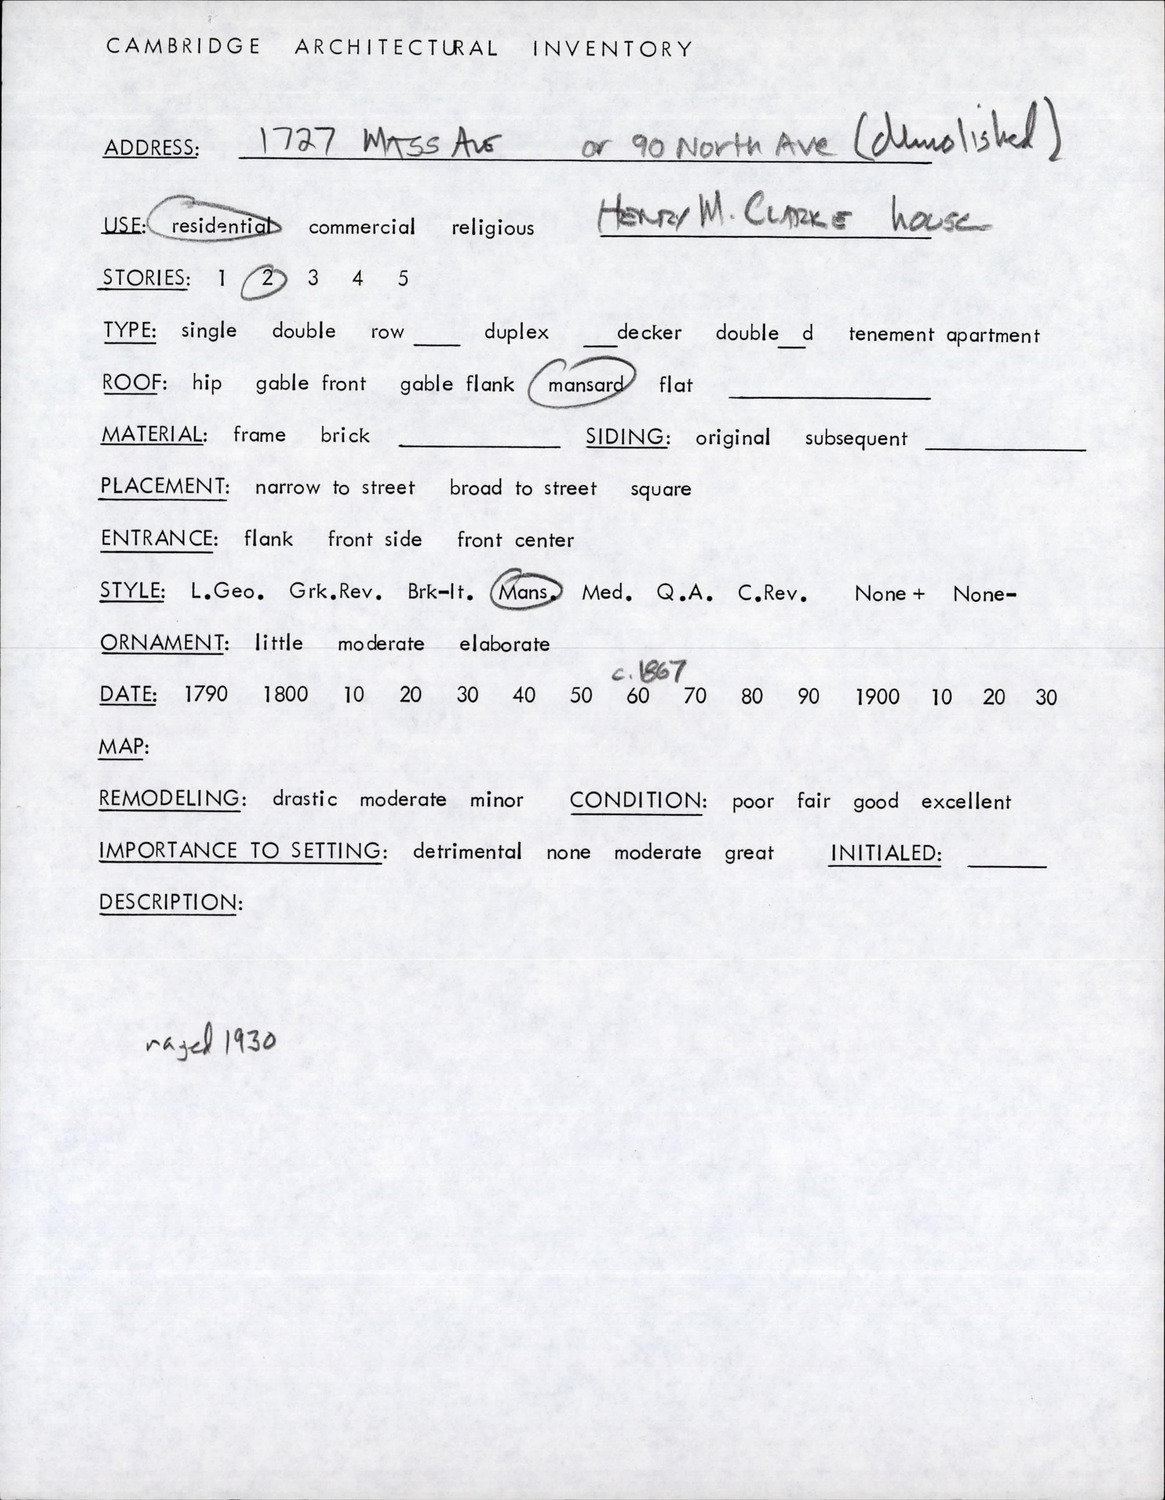 CAMBRIDGE ARCHITECTURAL INVENTORY
ADDRESS: 1727 MASS AVE or 90 North Ave (demolished)
USE: residential commercial religious HENRY M. CLARKE house
STORIES: 1 2 3 4 5
TYPE: single double row ____ duplex ___decker double__d tenement apartment
ROOF: hip gable front gable flank mansard flat ____
MATERIAL: frame brick ____ SIDING: original subsequent ____
PLACEMENT: narrow to street broad to street square
ENTRANCE: flank front side front center
STYLE: L.Geo. Grk.Rev. Brk-It. Mans. Med. Q.A. C.Rev. None+ None-
ORNAMENT: little moderate elaborate
c. 1867
DATE: 1790 1800 10 20 30 40 50 60 70 80 90 1900 10 20 30
MAP:
REMODELING: drastic moderate minor CONDITION: poor fair good excellent
IMPORTANCE TO SETTING: detrimental none moderate great INITIALED: ____
DESCRIPTION:
razed 1930